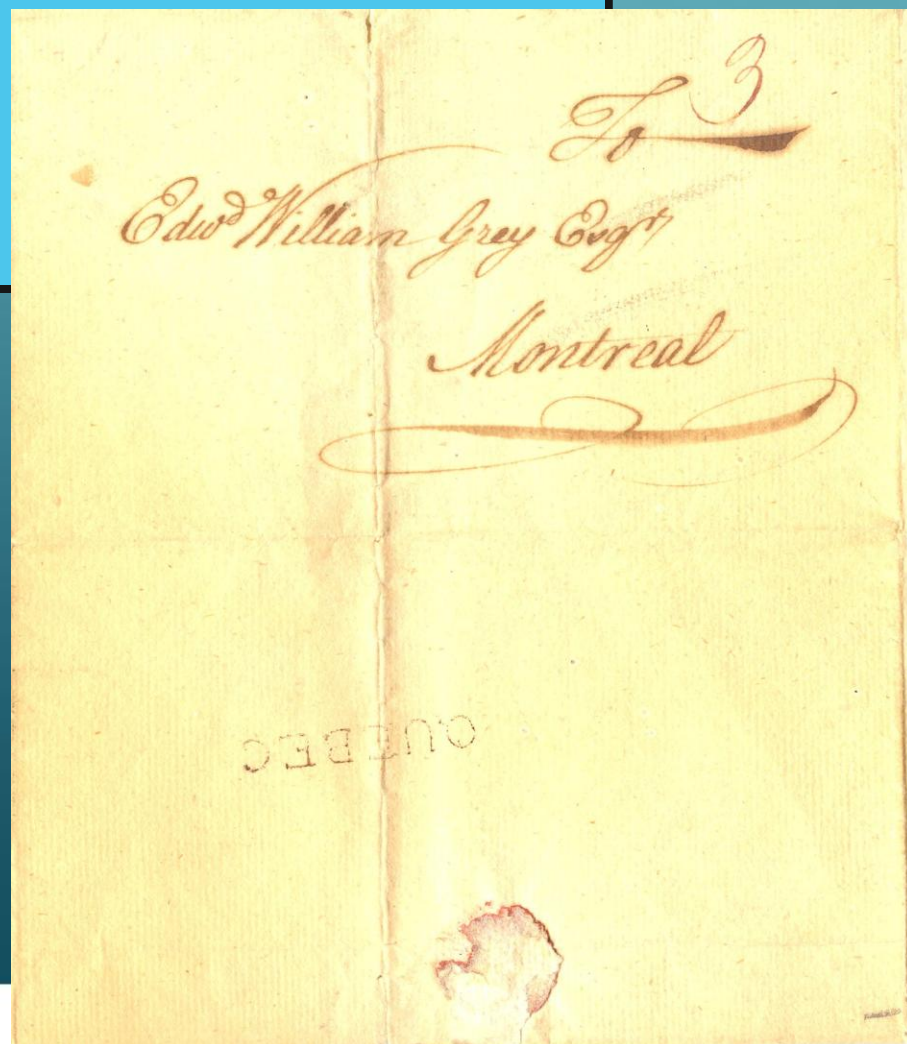 3
To
Edwd William Grey Esqr
Montreal
QUEBEC